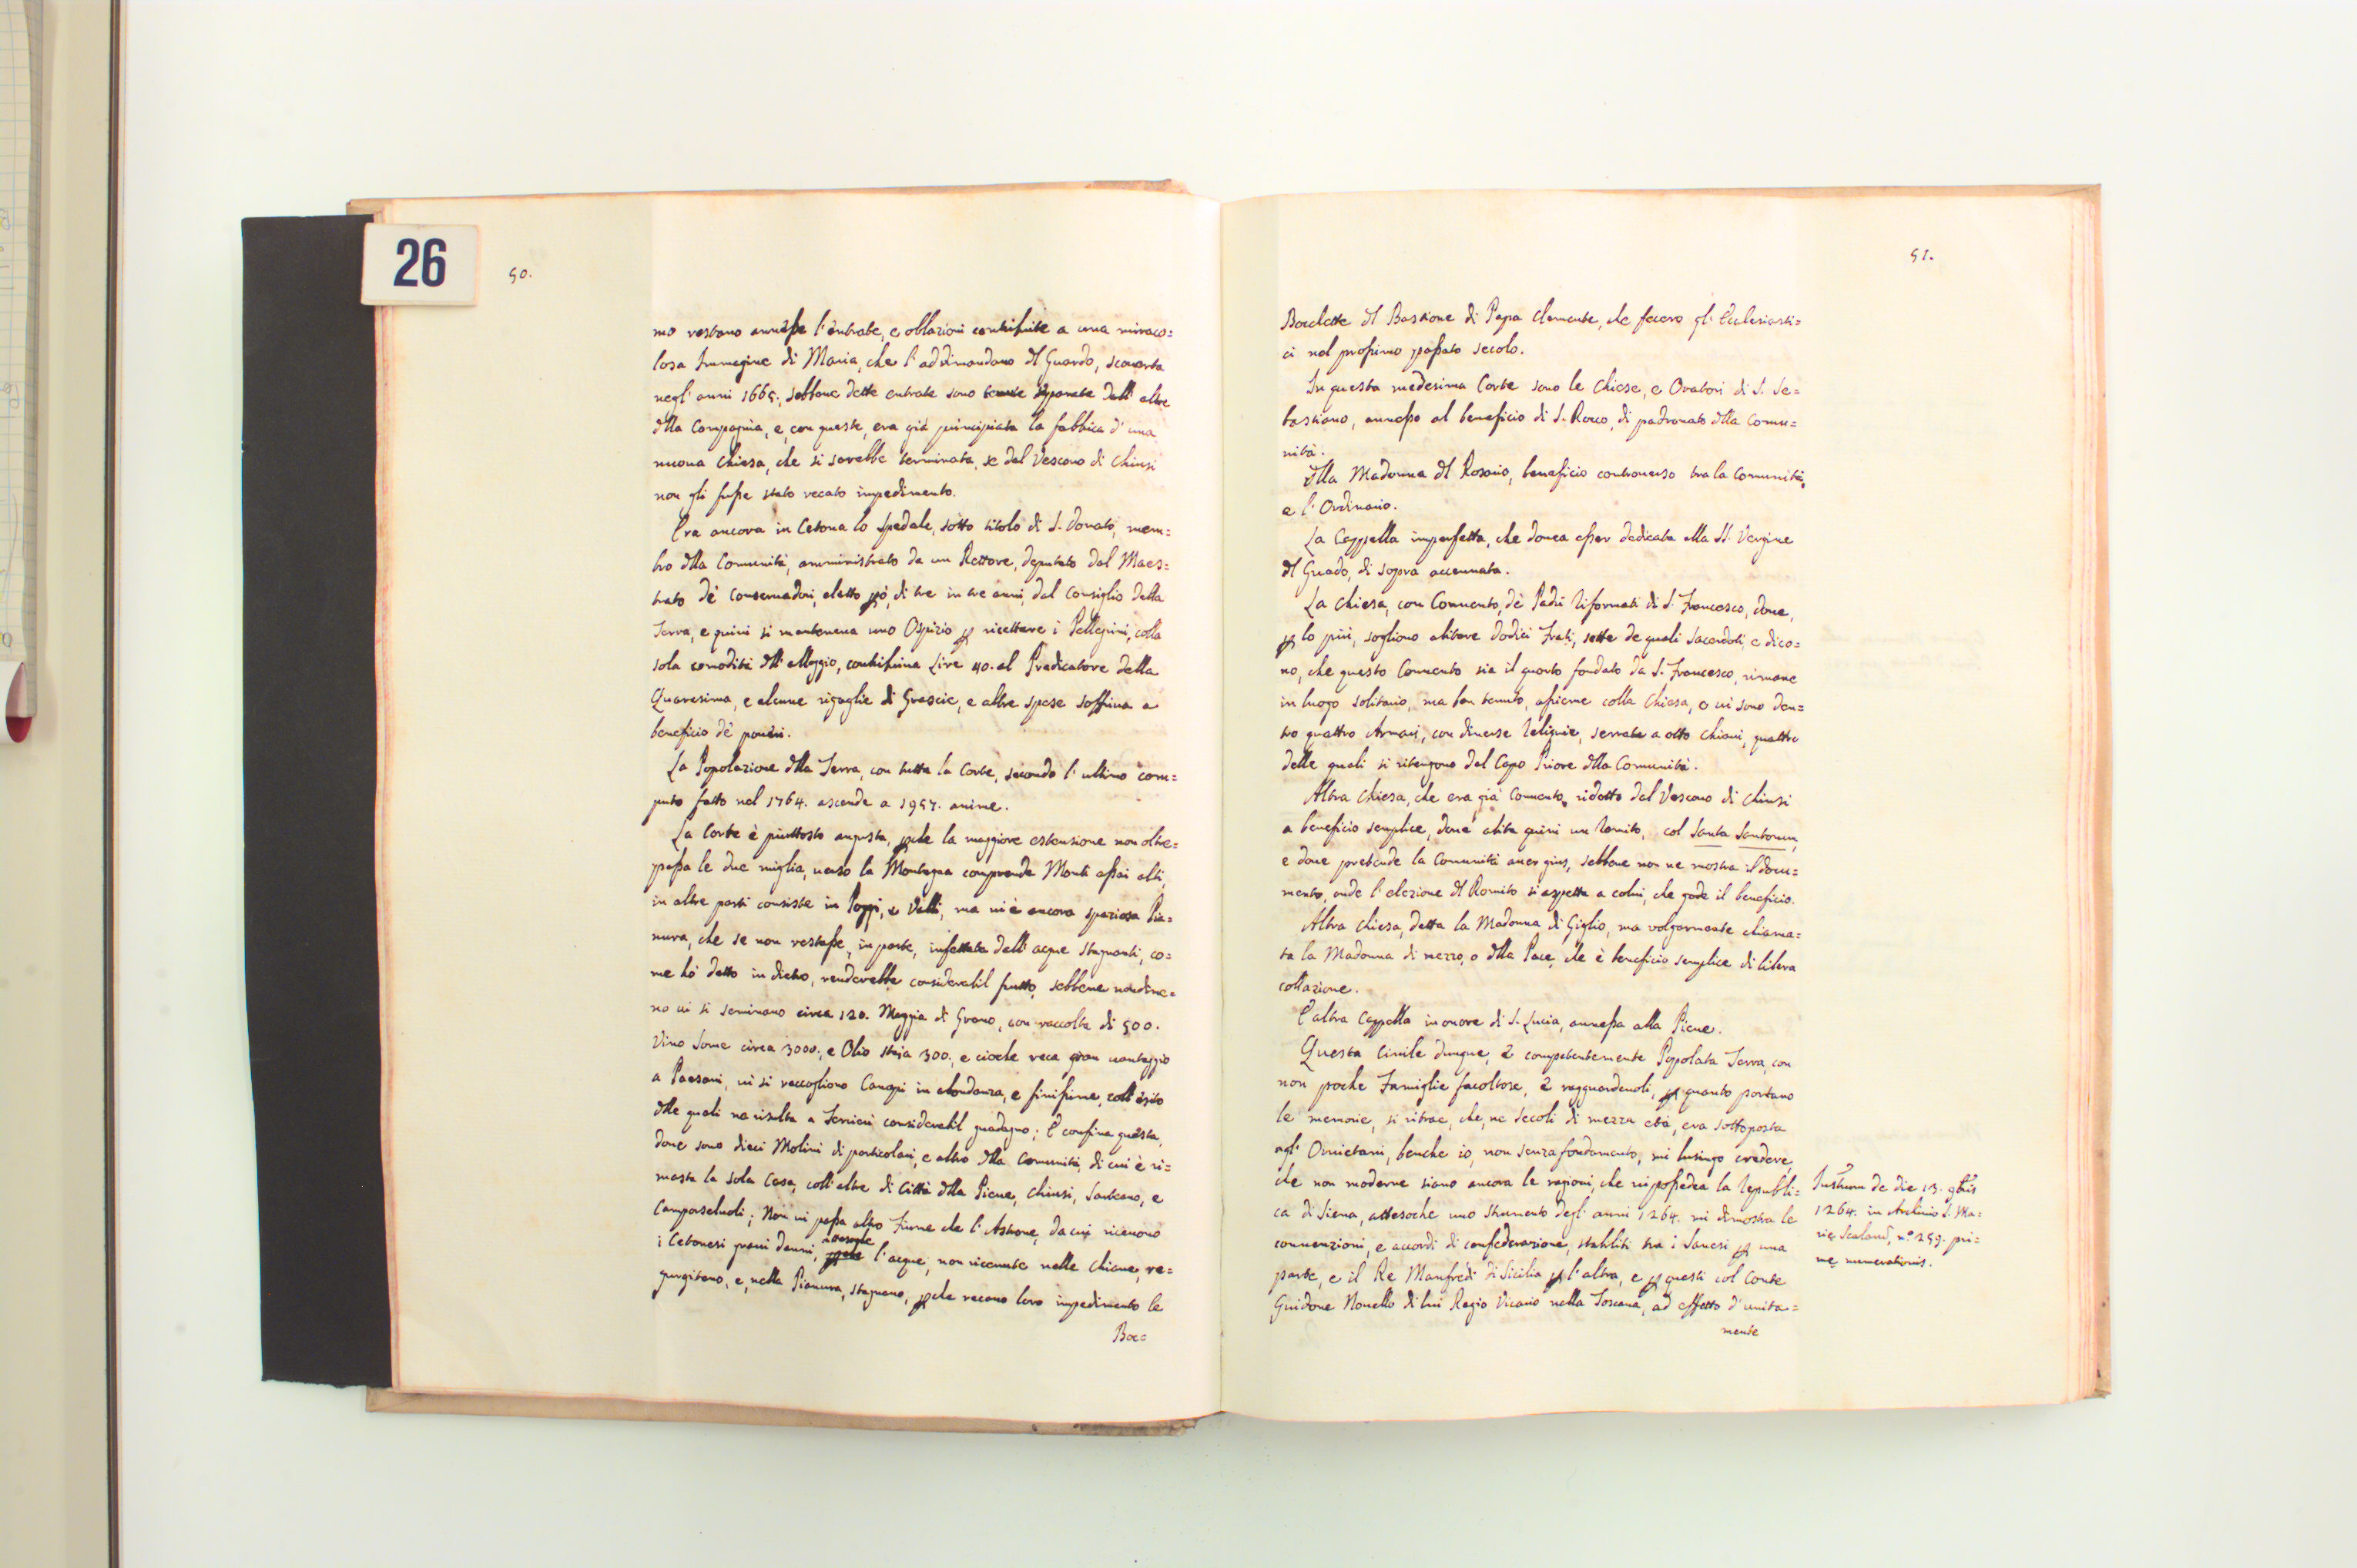 26
50.
mo restano annesse l'entrate, e oblazioni contribuite a una miraco=
losa Immagine di Maria, che l'addimandano dl Guardo, scoverta
negl' anni 1665., sebbene dette entrate sono tenute separate dall' altre
dlla Compagnia, e, con queste, era già principiata la fabbica d' una
nuova Chiesa, che si sarebbe terminata, se dal Vescovo di Chiusi
non gli fusse stato recato impedimento.
Era ancora in Cetona lo spedale, sotto titolo di S. Donato, mem=
bro dlla Comunità, amministrato da un Rettore, deputato dal Maes=
trato de' Conservadori, eletto però, di tre in tre anni, dal Consiglio della
Terra, e quivi si manteneva uno Ospizio per ricettare i Pellegrini, colla
sola comodità dll' alloggio, contribuiva Lire 40. al Predicatore della
Quaresima, e alcune rigaglie di Grascie, e altre spese soffriva a
beneficio de' poveri.
La Popolazione dlla Terra, con tutta la Corte, secondo l' ultimo com=
puto fatto nel 1764. ascende a 1957. anime.
La Corte è piuttosto angusta, perche la maggiore estensione non oltre=
passa le due miglia, verso la Montagna comprende Monti assai alti,
in altre parti consiste in Poggi, e Valli, ma vi è ancora spaziosa Pia=
nura, che se non restasse, in parte, infettata dall' acque stagnanti, co=
me hò detto in dietro, renderebbe considerabil frutto, sebbene nondime=
no vi si seminano circa 120. Moggia di Grano, con raccolta di 500.
Vino Some circa 3000., e Olio staja 300., e cioche reca gran vantaggio
a Paesani, vi si raccogliono Canapi in abondanza, e finissime, coll' esito
dlle quali ne risulta a Terrieri considerabil guadagno; E confina questa,
dove sono dieci Molini di particolari, e altro dlla Comunità, di cui è ri=
masta la sola Casa, coll' altre di Città dlla Pieve, Chiusi, Sarteano, e
Camporselvoli; Non vi passa altro Fiume che l' Astrone, da cui ricevono
i Cetonesi gravi danni, l' acque, non ricevute nelle Chiane, re=
gurgitano, e, nella Pianura, stagnano, perche recano loro impedimento le
Boc=
51.
Bocchette dl Bastione di Papa Clemente, che fecero gl' Ecclesiasti=
ci nel prossimo passato secolo.
In questa medesima Corte sono le Chiese, e Oratori di S. Se=
bastiano, annesso al beneficio di S. Rocco, di padronato dlla Comu=
nità.
Dlla Madonna dl Rosario, beneficio controverso tra la Comunità,
e l' Ordinario.
La Cappella imperfetta, che dovea esser dedicata alla SS. Vergine
dl Guado, di sopra accennata.
La Chiesa, con Convento, de' Padri Riformati di S. Francesco, dove,
per lo più, sogliono abitare dodici Frati, sette de quali Sacerdoti, e dico=
no, che questo Convento sia il quarto fondato da S. Francesco, rimane
in luogo solitario, ma ben tenuto, assieme colla Chiesa, e vi sono den=
tro quattro Armari, con diverse Reliquie, serrate a otto Chiavi, quattro
delle quali si ritengono dal Capo Priore dlla Comunità.
Altra Chiesa, che era già Convento, ridotto dal Vescovo di Chiusi
a beneficio semplice, dove abita quivi un Romito, col Santa Santorum,
e dove pretende la Comunità aver gius, sebbene non ne mostra il docu=
mento, onde l' elezione dl Romito si aspetta a colui, che gode il beneficio.
Altra Chiesa, detta la Madonna di Giglio, ma volgarmente chiama=
ta la Madonna di mezzo, o dlla Pace, che è beneficio semplice di libera
collazione.
E altra Cappella in onore di S. Lucia, annessa alla Pieve.
Questa Civile dunque, e competentemente Popolata Terra, con
non poche Famiglie facoltose, e ragguardevoli, per quanto portano
le memorie, si ritrae, che, ne secoli di mezza età, era sottoposta
agl' Orvietani, benche io, non senza fondamento, mi lusingo credere,
che non moderne siano ancora le ragioni, che vi possedea la Republi=
ca di Siena, attesoche uno strumento degl' anni 1264. mi dimostra le
convenzioni, e accordi di confederazione, stabiliti tra i Sanesi per una
parte, e il Re Manfredi di Sicilia per l'altra, e per questi col Conte
Guidone Novello di lui Regio Vicario nella Toscana, ad effetto d' unita=
mente
Instrum de die 13. 9bris
1264. in Archivio S. Ma=
rię Scalarū, n.° 259. pri=
mę numerationis.